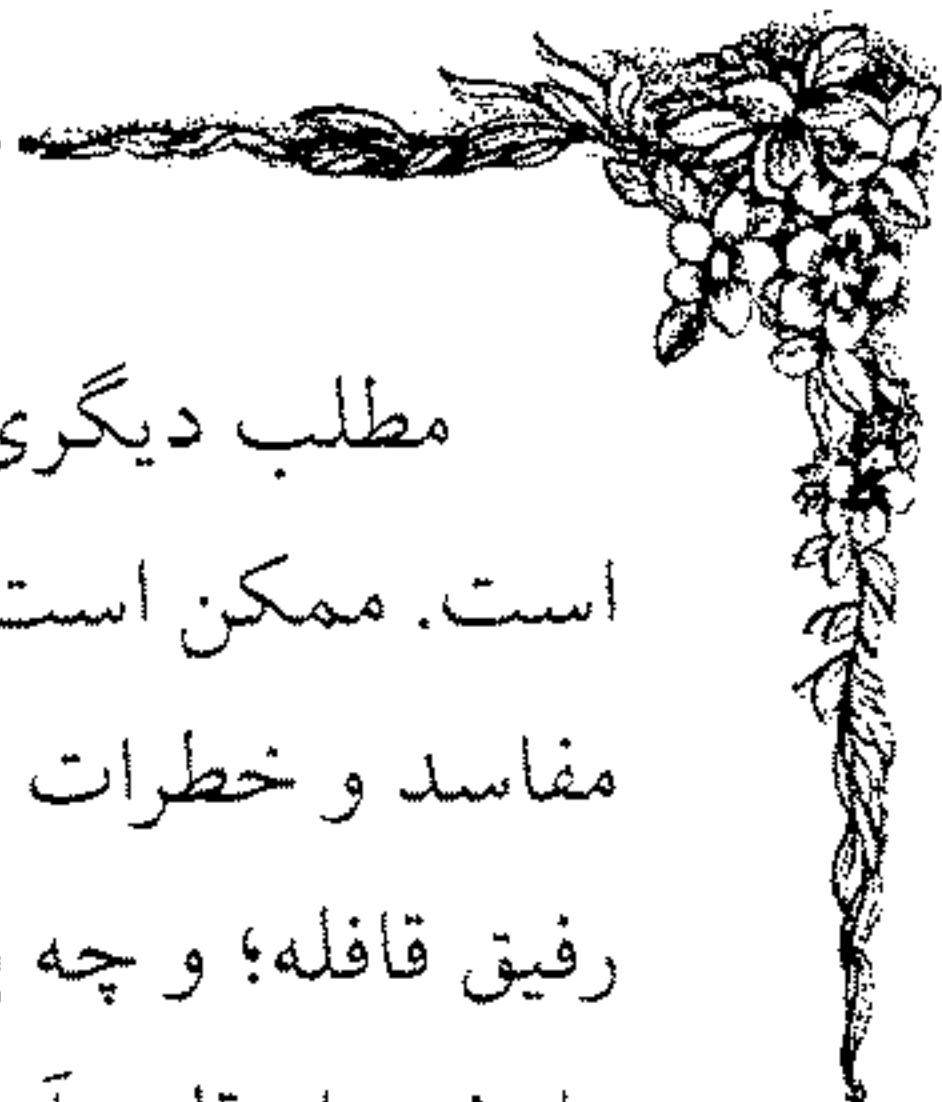 مطلب دیگری
است. ممکن است
مفاسد و خطرات
رفیق قافله؛ و چه